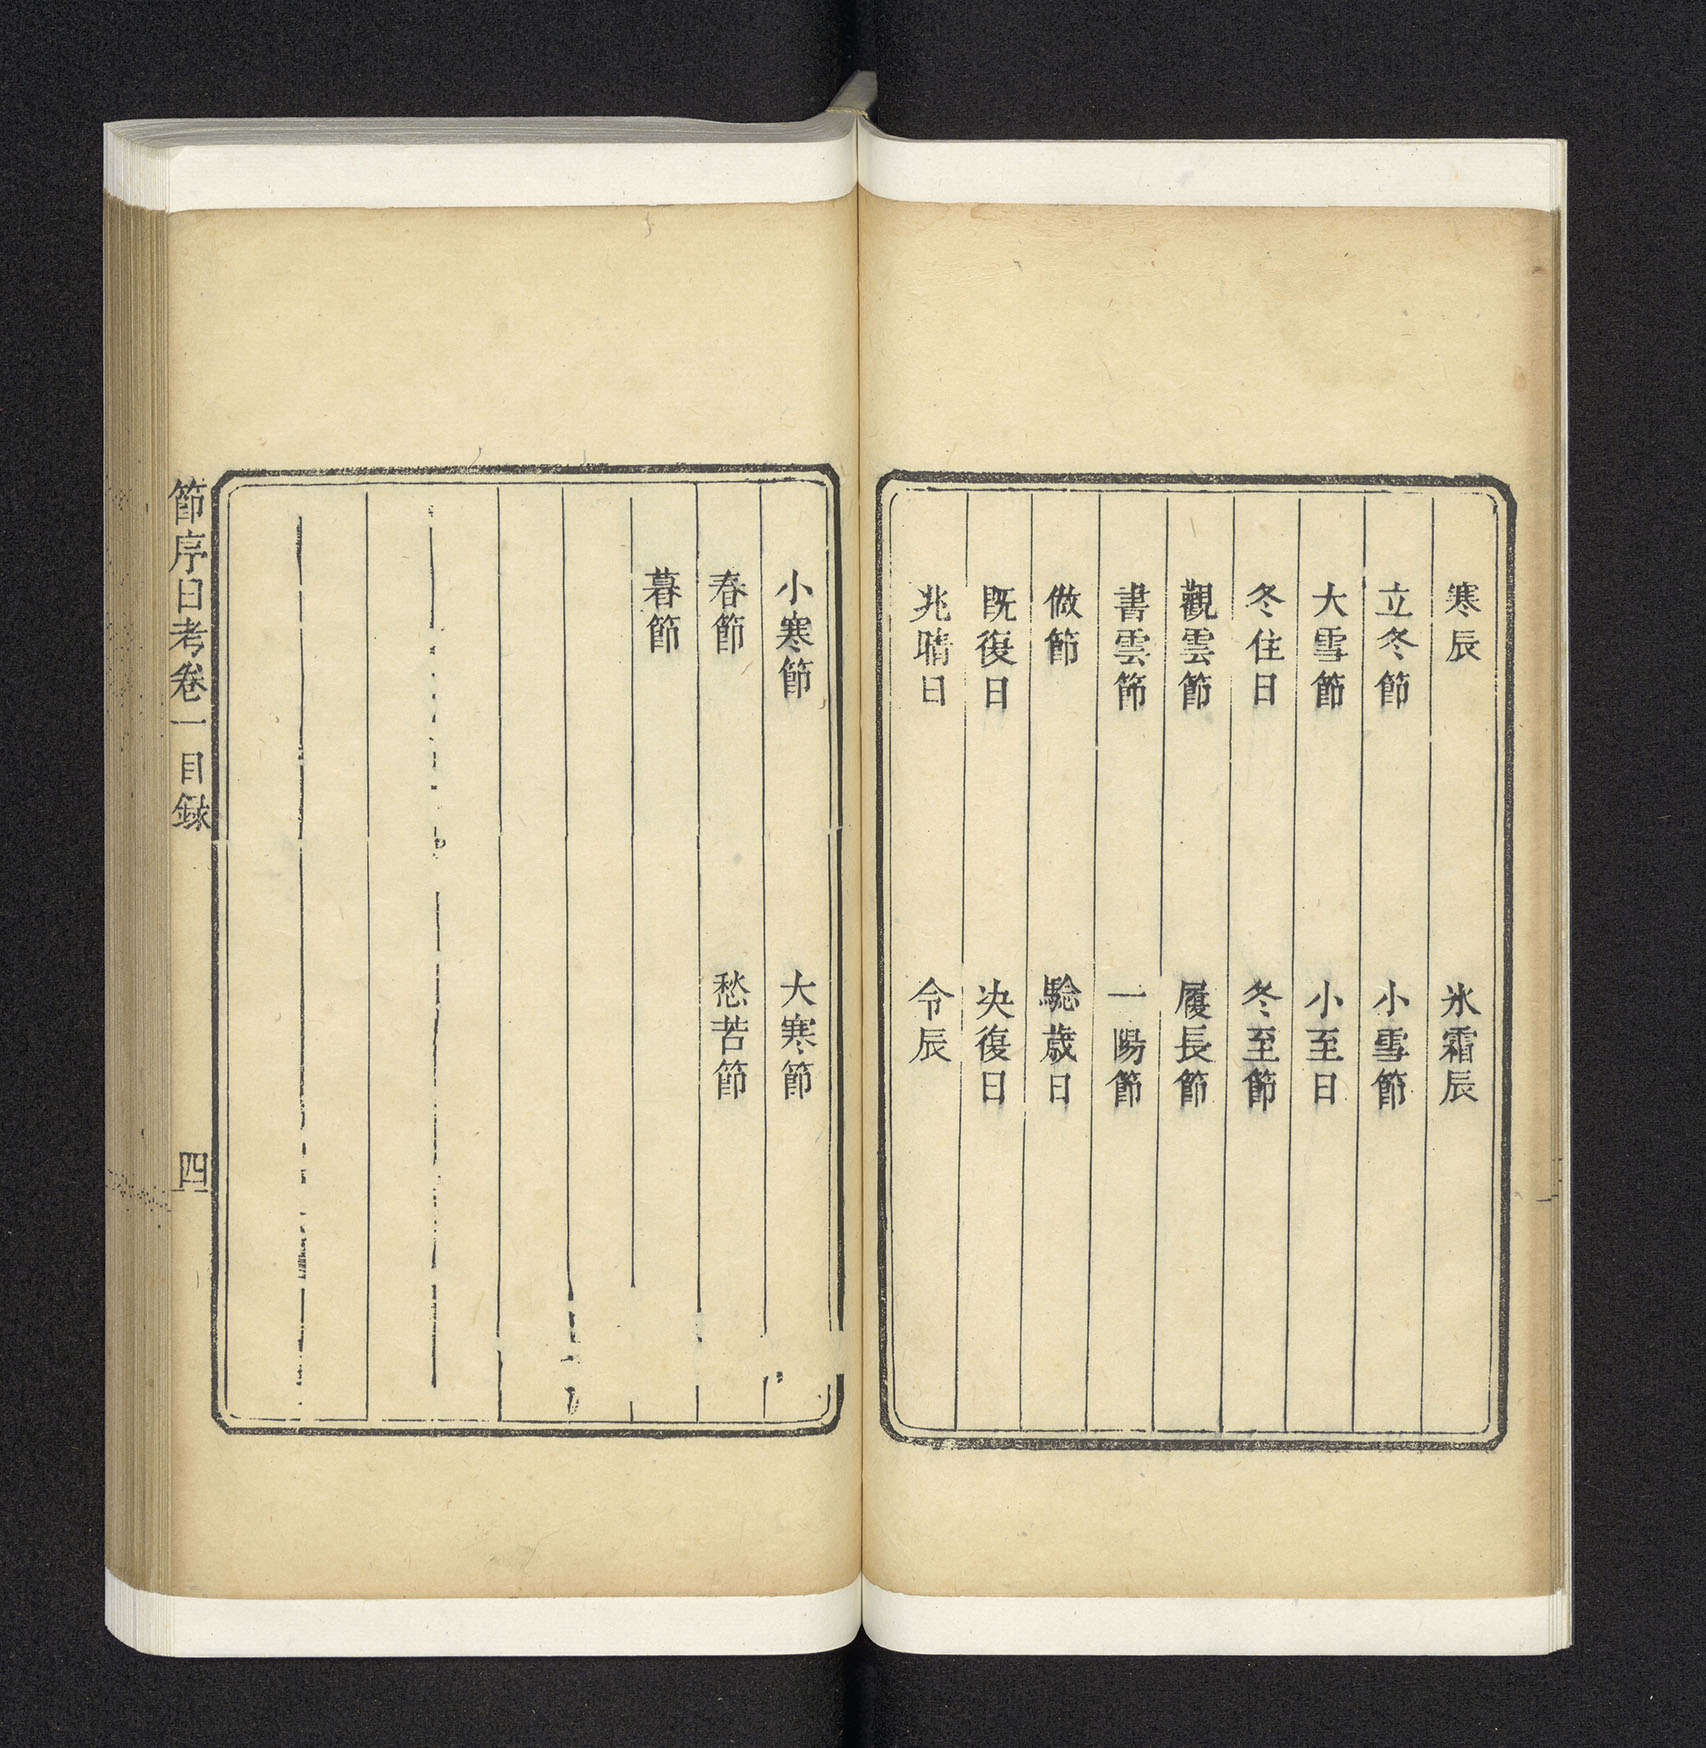 寒辰　氷霜辰
立冬節　小雪節
大雪節　小至日
冬住日　冬至節
觀雲節　履長節
書雲節　一陽節
做節　驗歲日
既復日　决復日
兆晴日　令辰
小寒節　大寒節
春節　愁苦節
暮節
節序日考卷一目錄　四